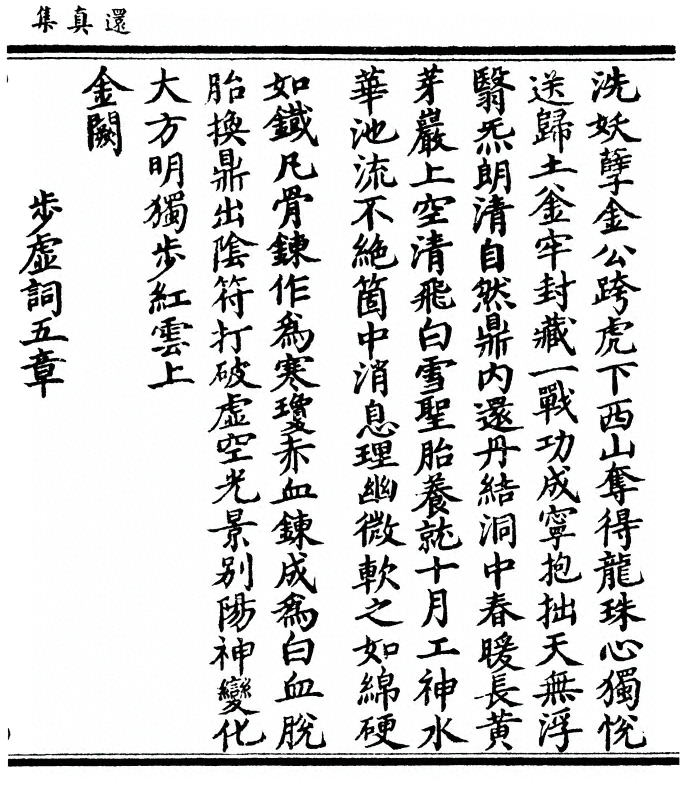 還真集
洗妖孽金公跨虎下西山奪得龍珠心獨悅
送歸土釜牢封藏一戰功成寧抱拙天無浮
翳炁朗清自然鼎內還丹結洞中春暖長黃
芽巖上空清飛白雪聖胎養就十月工神水
華池流不絶箇中消息理幽微軟之如綿硬
如鐵凡骨鍊作為寒瓊赤血鍊成為白血脫
胎換鼎出陰符打破虛空光景別陽神變化
大方明獨步紅雲上
金闕
步虛詞五章